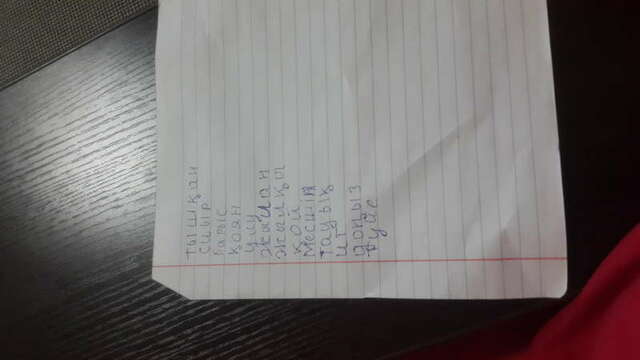 тышқан
сиыр
барыс
қоян
улу
жылан
жылқы
қой
мешін
тауық
ит
доңыз
түйе